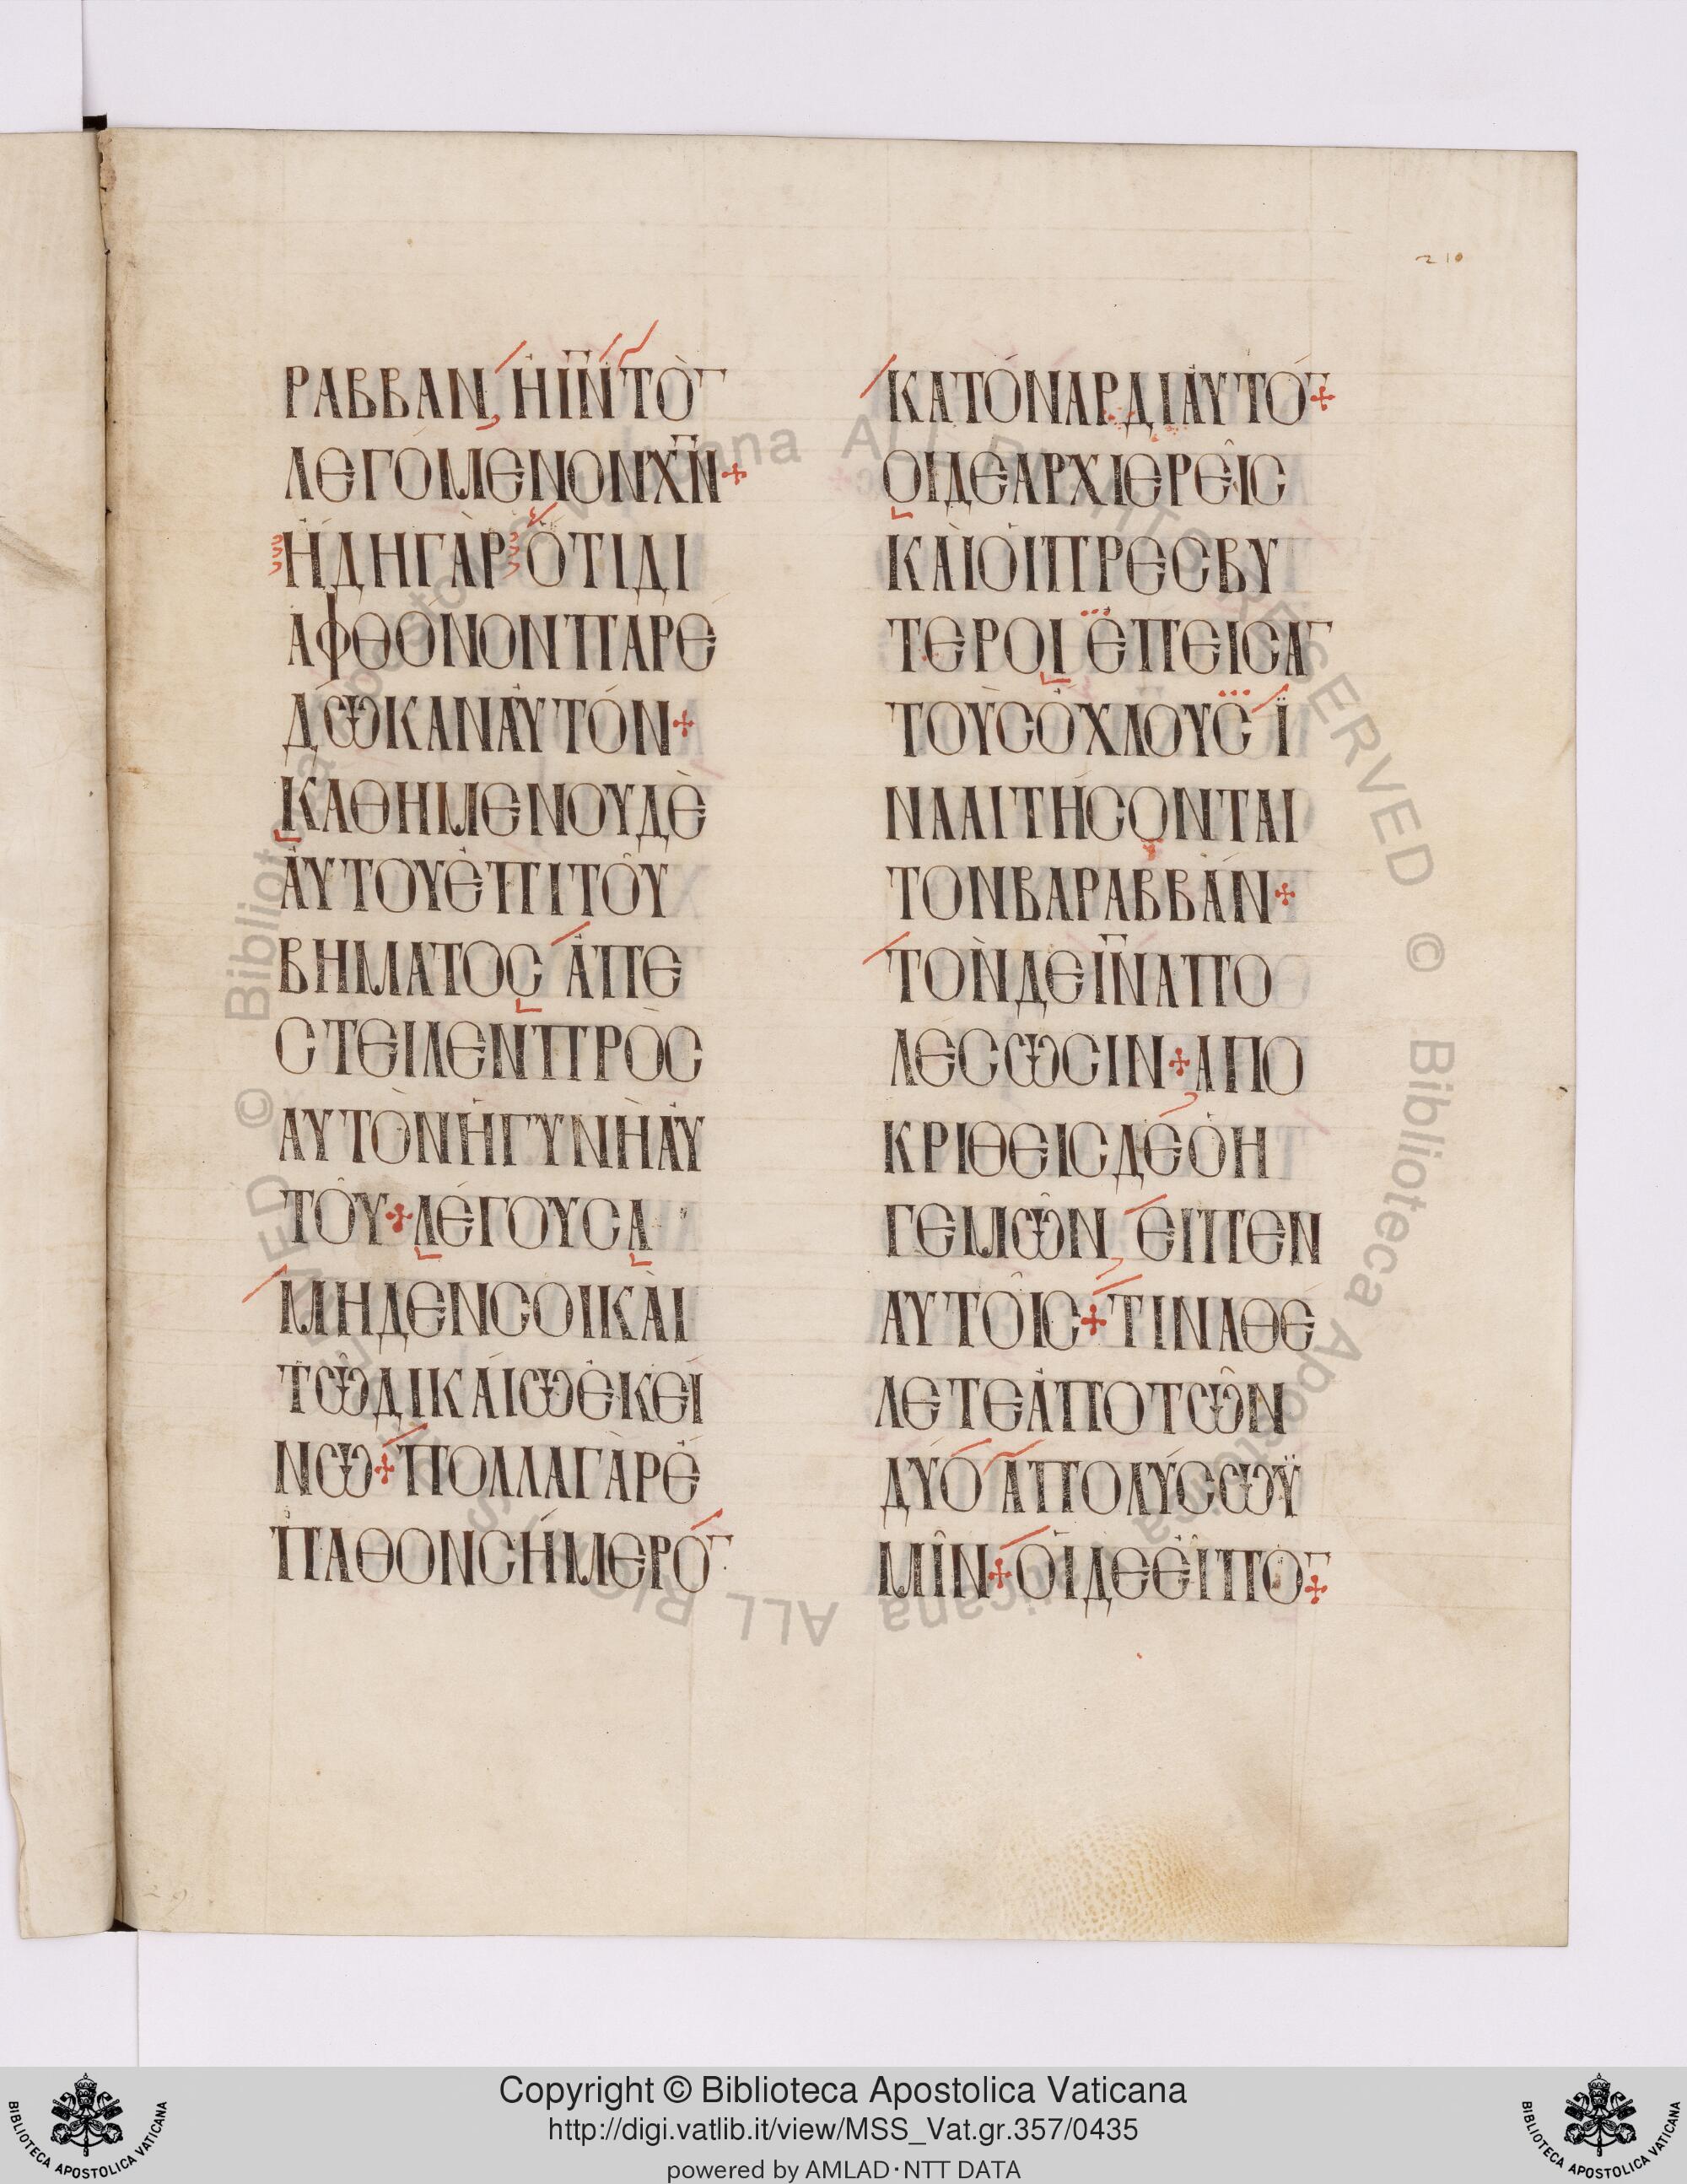 210
ΡΑΒΒΑΝ, ἨΙ̅Ν̅ΤῸ¯
ΛΕΓΌΜΕΝΟΝΧ̅Ν̅+
ἬΔΗΓᾺΡὍΤΙΔΙ
ΑΦΘΌΝΟΝΠΑΡΈ
ΔΩΚΑΝἈΥΤΌΝ+
ΚΑΘΗΜΈΝΟΥΔῈ
ἈΥΤΟΥἘΠΙΤΟΥ͂
ΒΉΜΑΤΟΣ ἈΠΈ
ΣΤΕΙΛΕΝΠΡῸΣ
ΑΥΤῸΝἩΓΥΝῊἈΥ
ΤΟΥ͂+ΛΈΓΟΥΣΑ
ΜΗΔΕΝΣΟΙΚᾺΙ
ΤΩ͂ΔΙΚΆΙΩἘΚΕΊ
ΝΩ+ΠΟΛΛΑΓᾺΡἜ
ΠΑΘΟΝΣΉΜΕΡΟ¯
ΚΑΤΌΝΑΡΔΙἈΥΤΌ¯+
ΟΙΔΕΑΡΧΙΕΡΕΙ͂Σ
ΚᾺΙΟἹΠΡΕΣΒΥ
ΤΕΡΟΙ ἜΠΕΙΣΑ¯
ΤΟῪΣὌΧΛΟΥΣ Ϊ
ΝΑΑΙΤΉΣΟΝΤΑΙ
ΤΟΝΒΑΡΑΒΒΆΝ+
ΤῸΝΔΕΙ̅Ν̅ΑΠΟ
ΛΈΣΩΣΙΝ+ΑΠΟ
ΚΡΙΘΕΙΣΔΕὉΗ
ΓΕΜΩ͂Ν, ΕΙΠΕΝ
ΑΥΤΟΙ͂Σ+ΤΙΝΑΘΈ
ΛΕΤΕἈΠΟΤΩ͂Ν
ΔΎΟ ΑΠΟΛΎΣΩΫ
ΜΙ͂Ν+ΟἹΔΕΕἸΠΟ¯+
Copyright © Biblioteca Apostolica Vaticana
http://digi.vatlib.it/view/MSS_Vat.gr.357/0435
powered by AMLAD·NTT DATA
BIBLIOTECA APOSTOLICA VATICANA
BIBLIOTECA APOSTOLICA VATICANA